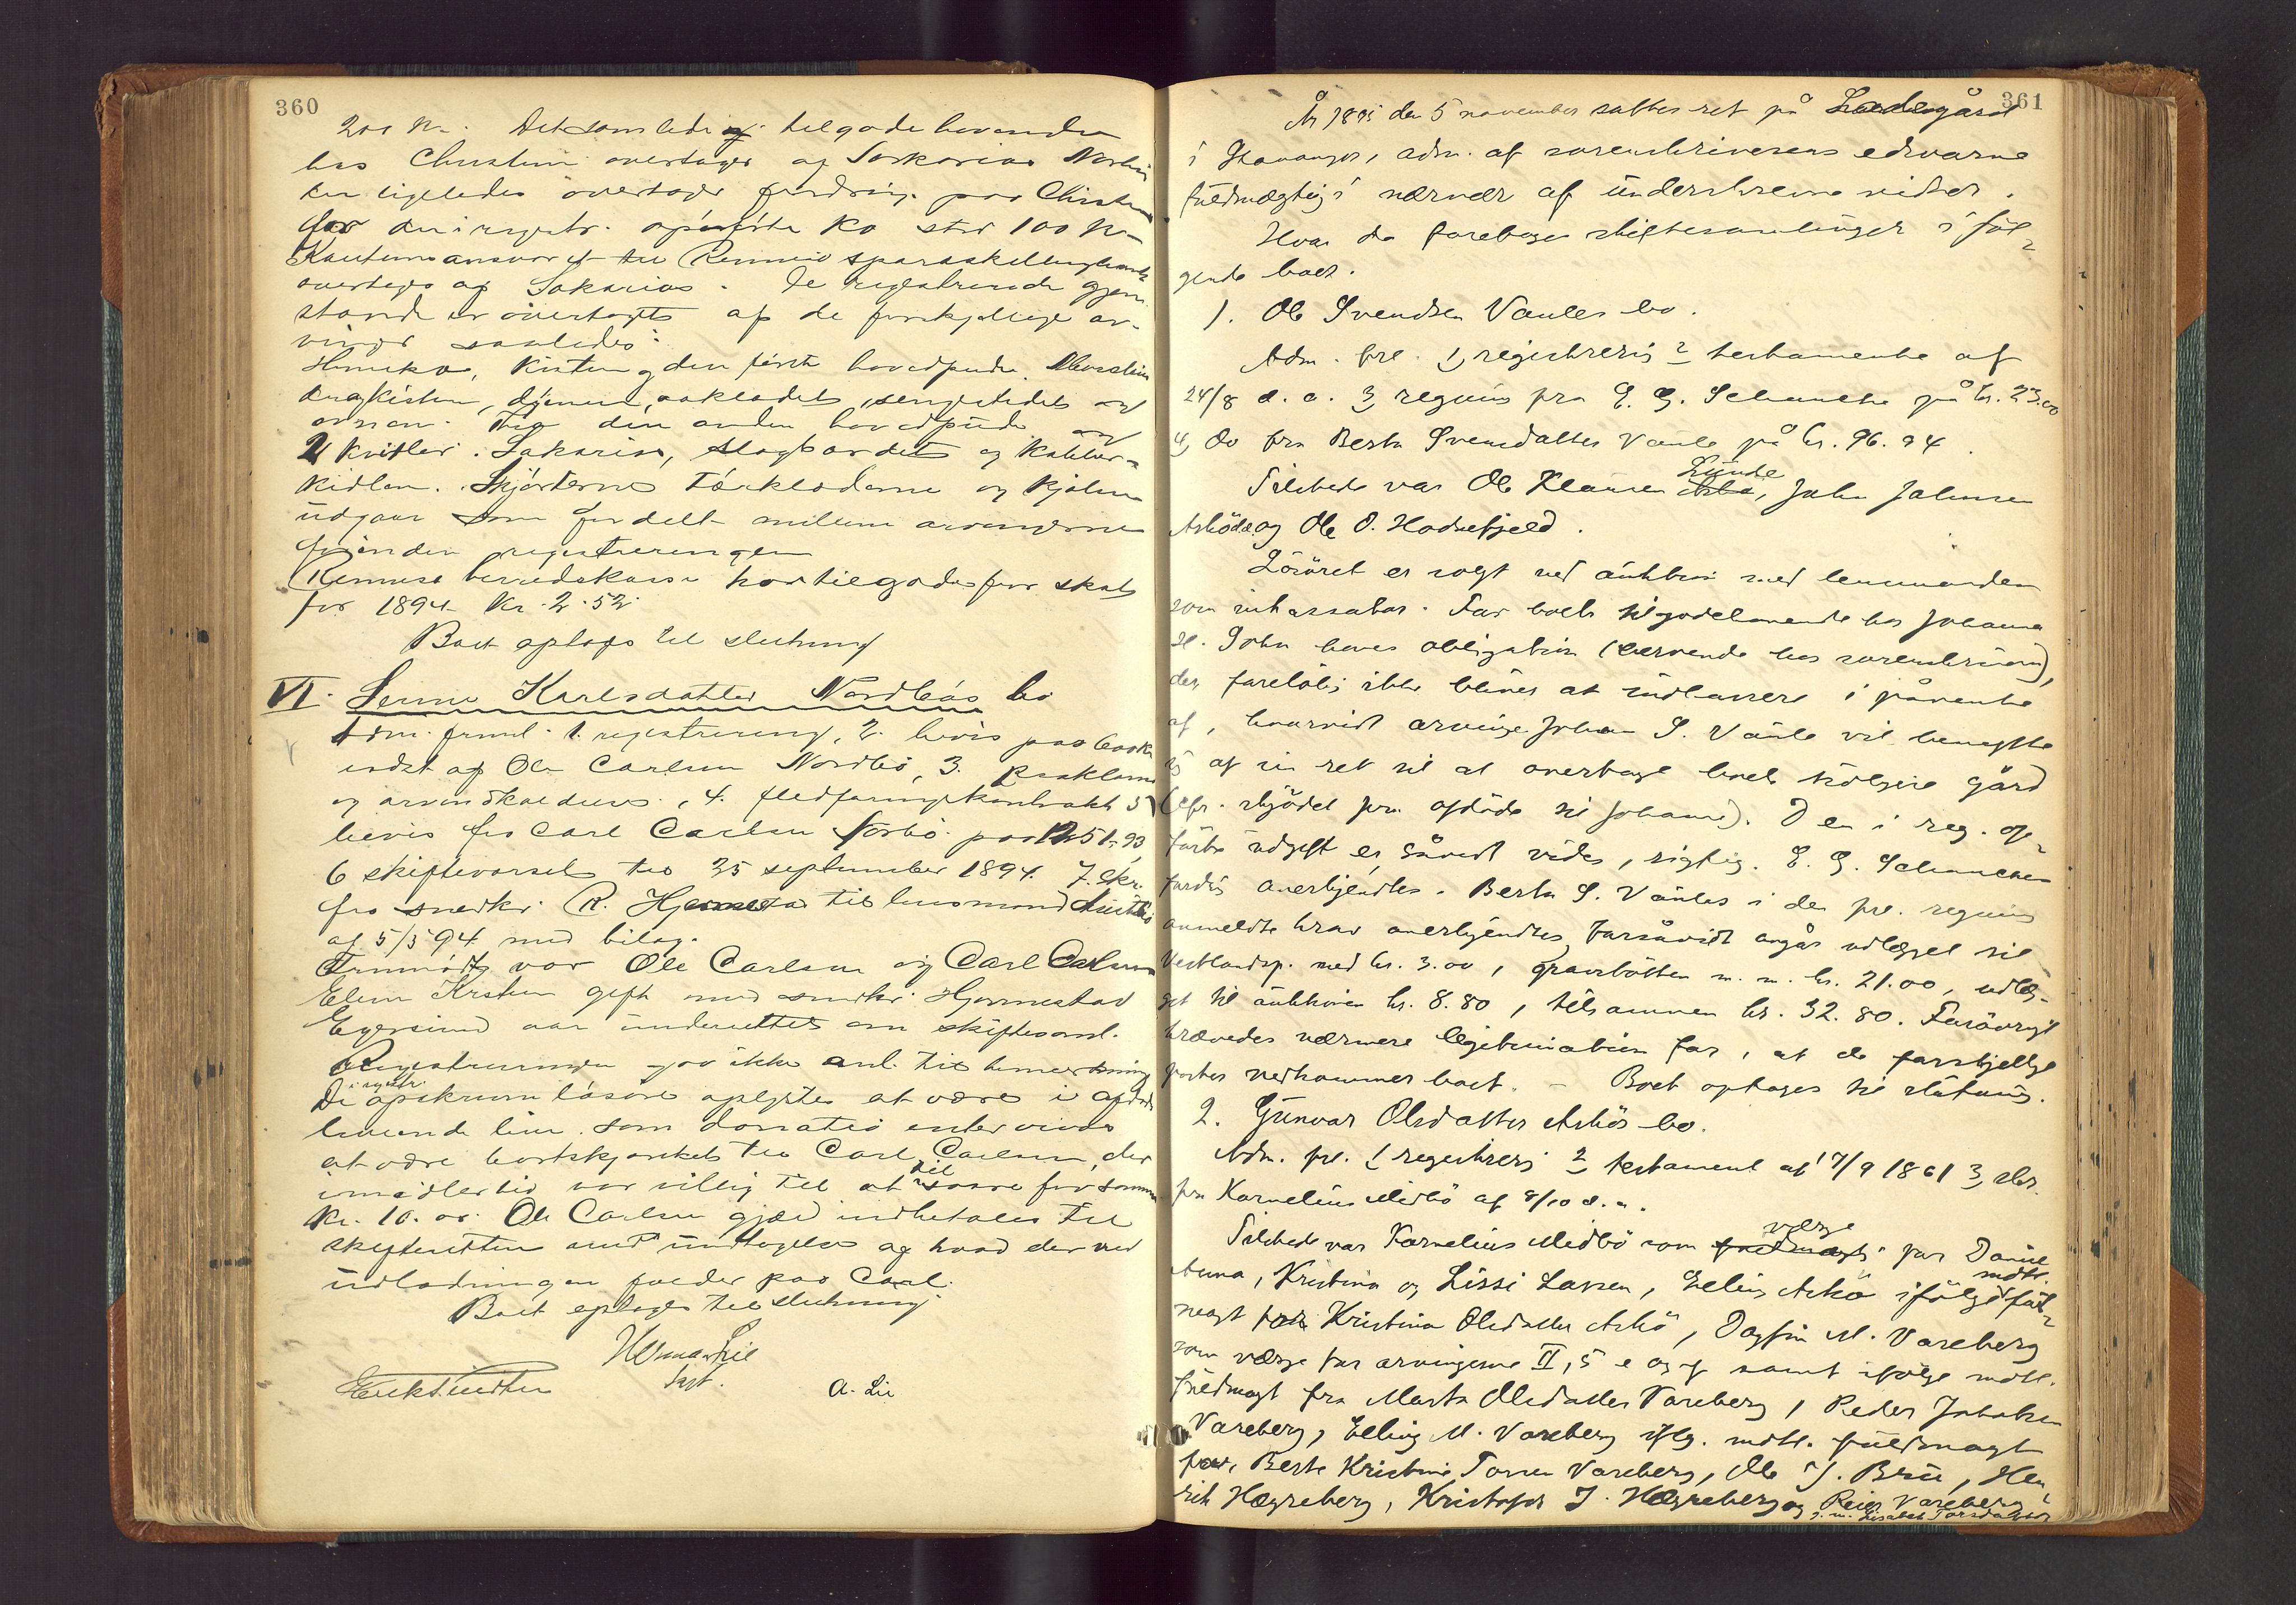 360
200 kr. Det samlede tilgodehavende
hos Christen overtages af Sakarias
der ligeledes overtager fordring paa Christen
for den i registr. opførte ko stor 100 kr
Kautionsansvaret til Rennesø sparaskillingbank
overtages af Sakarias. De registrerede gjen
stande er overtagt af de forskjellige ar-
vinger saaledes:
kisten og den første hovedpude.
dragkisten, dynen, aakladet, sengestedet og
den anden hovedpude og
2 kvitler. Sakarias, slagbordet og kobber-
kidlen. Skjorterne Tørklæderne og kjolen
udgaar som fordelt mellem arvingerne
før registreringen
Rennesø herredskasse har tilgode for skat
for 1894 Kr. 2.52.
Boet optoges til slutning
VI. Karlsdatter Nordbøs bo
Adm. freml. 1. registrering, 2. bevis paa
udst af Ole Carlsen Nordbø, 3. proklama
og arveindkaldelse, 4. fledføringskontrakt 5
bevis fra Carl Carlsen paa
6 skiftevarsel til 25 september 1894. 7. Skr.
fra snedker R. til lensmand
af 5/5 94 med bilag.
Fremmødt var Ole Carlsen og Carl Carlsen
gift med snedker
Egersund var underrettet om skiftesaml.
Registreringen gav ikke anl. til bemerkning
De i registr. opskrevne løsøre oplystes at være i afdødes
levende live som donatio inter vivos
at være bortskjænket til Carl Carlsen, der
imidlertid var villig til at til for samme
kr. 10.00. Ole Carlsens gjæld indbetales til
skifteretten med undtagelse af hvad der ved
udlodningen falder paa Carl.
Boet optages til slutning.
A. Lie
361
År 1895 den 5 november sattes ret på Ladegård
i Stavanger, adm. af sorenskriverens edsvorne
fuldmægtig i nærvær af underskrevne vidner.
Hvor da foretoges skiftesamlinger i føl-
gende boer.
1. Ole Svendsen Vaules bo.
Adm. fre. 1, registrering 2 testamente af
24/8 d. a. 3, regning fra E. G. Schancke på kr. 23.00
4, do fra Berta Svendsdatter Vaule på kr. 96.94
Tilstede var Ole Klausen Lunde, John Johnsen
Askø og Ole O. Hodnefjeld.
Løsøret er solgt ved auktion med lensmanden
som inkassator. For boets tilgodehavende hos Johanne
haves obligation (beroende hos sorenskriveren),
der foreløbig ikke bliver at indkassere i påvente
af, hvorvidt arvinge Johan S. Vaule vil benytte
sig af sin ret til at overtage boets tidligere gård
(cfr. skjødet fra afdøde til Johanne). Den i reg. op-
førte udgift er, såvidt vides, rigtig. E. G. Schanckes
fordring anerkjendtes. Berta S. Vaules i den fre. regning
anmeldte krav anerkjendtes, forsåvidt angår udlægget til
Vestlandsp. med kr. 3.00, gravstøtten m. m. kr. 21.00, udlæg-
get til auktionen kr. 8.80, tilsammen kr. 32.80. Forøvrigt
krævedes nærmere legitimation for, at de forskjellige
poster vedkommer boet. – Boet optages til slutning.
2. Gunvor Olsdatter Askøs bo.
Adm. fre. 1 registrering 2 testament af 17/9 1861 3, skr.
fra Kornelius Midbø af 8/10 d. a.
Tilstede var Kornelius Midbø som værge for Daniel
Anna, Kristina og Lissi Larsen, Elling Askø ifølge mdtl. fuld-
magt for Kristina Olsdatter Askø, Dagfin M. Vareberg
som værge for arvingerne II, 5 e og f samt ifølge mdtl.
fuldmagt fra Marta Olsdatter Vareberg, Peder Jakobsen
Vareberg, Elling M. Vareberg iflg. mdtl. fuldmagt
for Berte Kristine Vareberg, Ole J. Bru, Hen
rik Hægreberg, Kristofer J. Hægreberg og Reier Vareberg
g. m. Lisabet Torsdatter